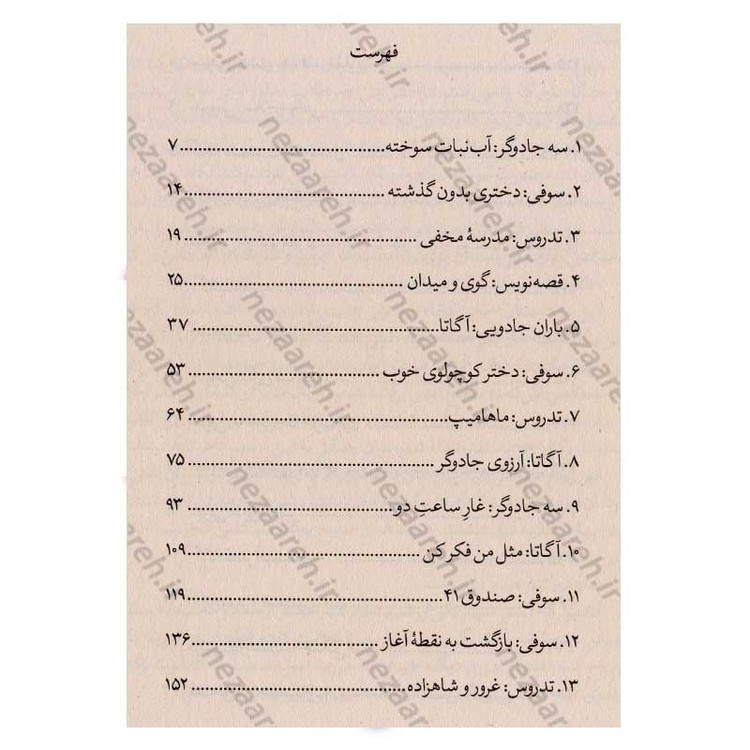 فهرست
۱. سه جادوگر: آب‌نبات سوخته........................................ ۷
۲. سوفی: دختری بدون گذشته ........................................ ۱۴
۳. تدروس: مدرسهٔ مخفی ........................................ ۱۹
۴. قصه‌نویس: گوی و میدان ........................................ ۲۵
۵. باران جادویی: آگاتا........................................ ۳۷
۶. سوفی: دختر کوچولوی خوب ........................................ ۵۳
۷. تدروس: ماهامیپ........................................ ۶۴
۸. آگاتا: آرزوی جادوگر ........................................ ۷۵
۹. سه جادوگر: غارِ ساعتِ دو........................................ ۹۳
۱۰. آگاتا: مثل من فکر کن ........................................ ۱۰۹
۱۱. سوفی: صندوق ۴۱........................................ ۱۱۹
۱۲. سوفی: بازگشت به نقطهٔ آغاز ........................................ ۱۳۶
۱۳. تدروس: غرور و شاهزاده........................................ ۱۵۲
nezaareh.ir